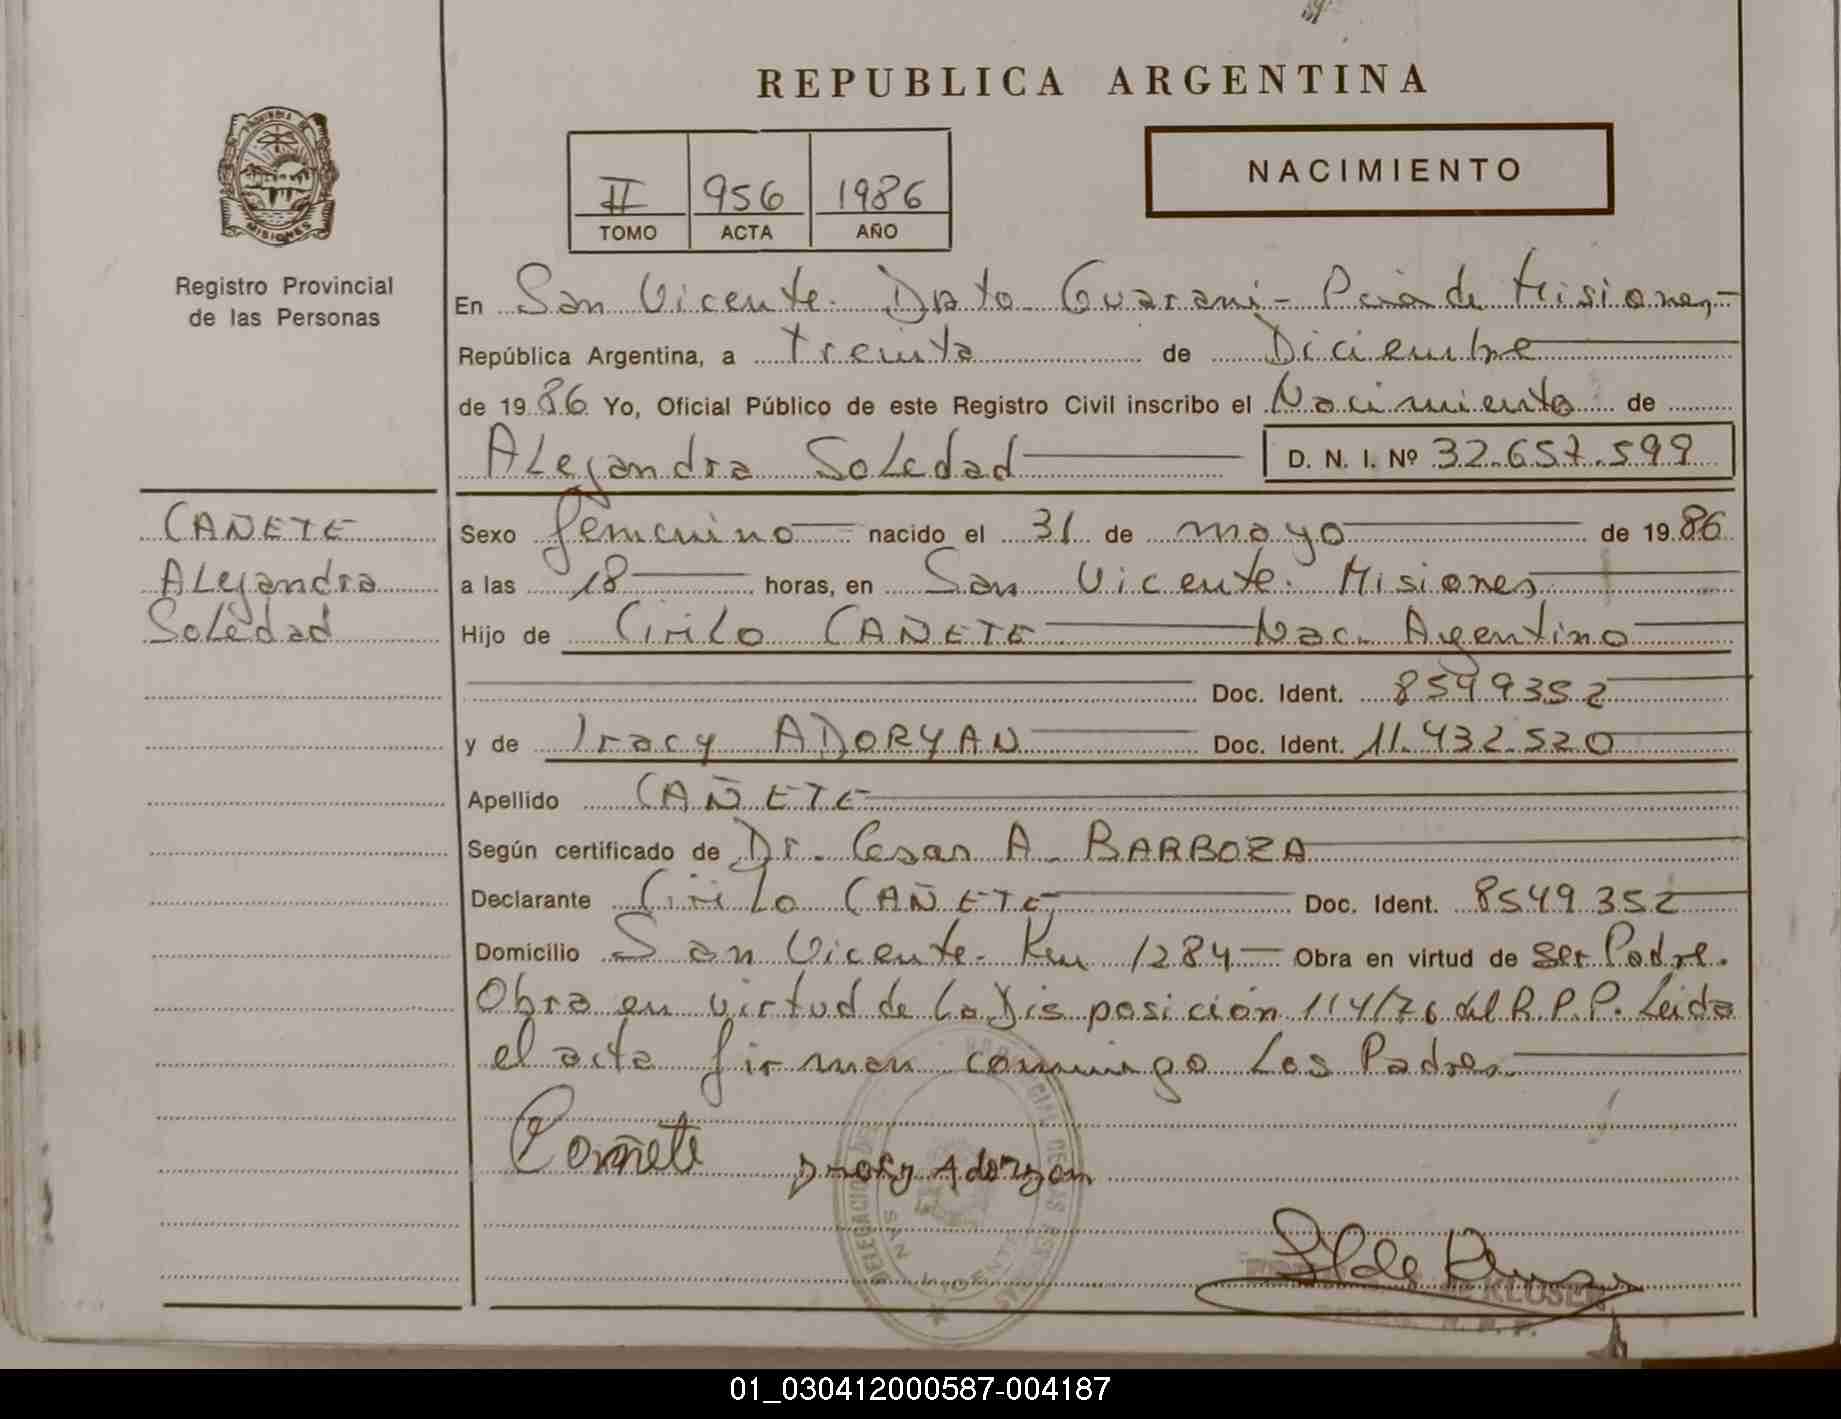 REPUBLICA ARGENTINA
NACIMIENTO
II 956 1986
TOMO ACTA AÑO
PROVINCIA DE
MISIONES
Registro Provincial
de las Personas
En San Vicente. Dpto Guarani - Pcia de Misiones,-
República Argentina, a treinta de Diciembre
de 1986 Yo, Oficial Público de este Registro Civil inscribo el Nacimiento de
Alejandra Soledad D. N. I. Nº 32.657.599
CAÑETE
Alejandra
Soledad
Sexo femenino nacido el 31 de mayo de 1986
a las 18 horas, en San Vicente. Misiones
Hijo de Cirilo CAÑETE Nac. Argentino
Doc. Ident. 8549352
y de Iracy ADORYAN Doc. Ident. 11.432.520
Apellido CAÑETE
Según certificado de Dr. Cesar A. BARBOZA
Declarante Cirilo CAÑETE, Doc. Ident. 8549352
Domicilio San Vicente. Km 1284 - Obra en virtud de ser Padre.
Obra en virtud de la Disposición 114/76 del R.P.P. Leida
el acta firman conmigo los Padres.
Cañete Iracy Adoryan
SAN VICENTE
KLUSEN
01_030412000587-004187